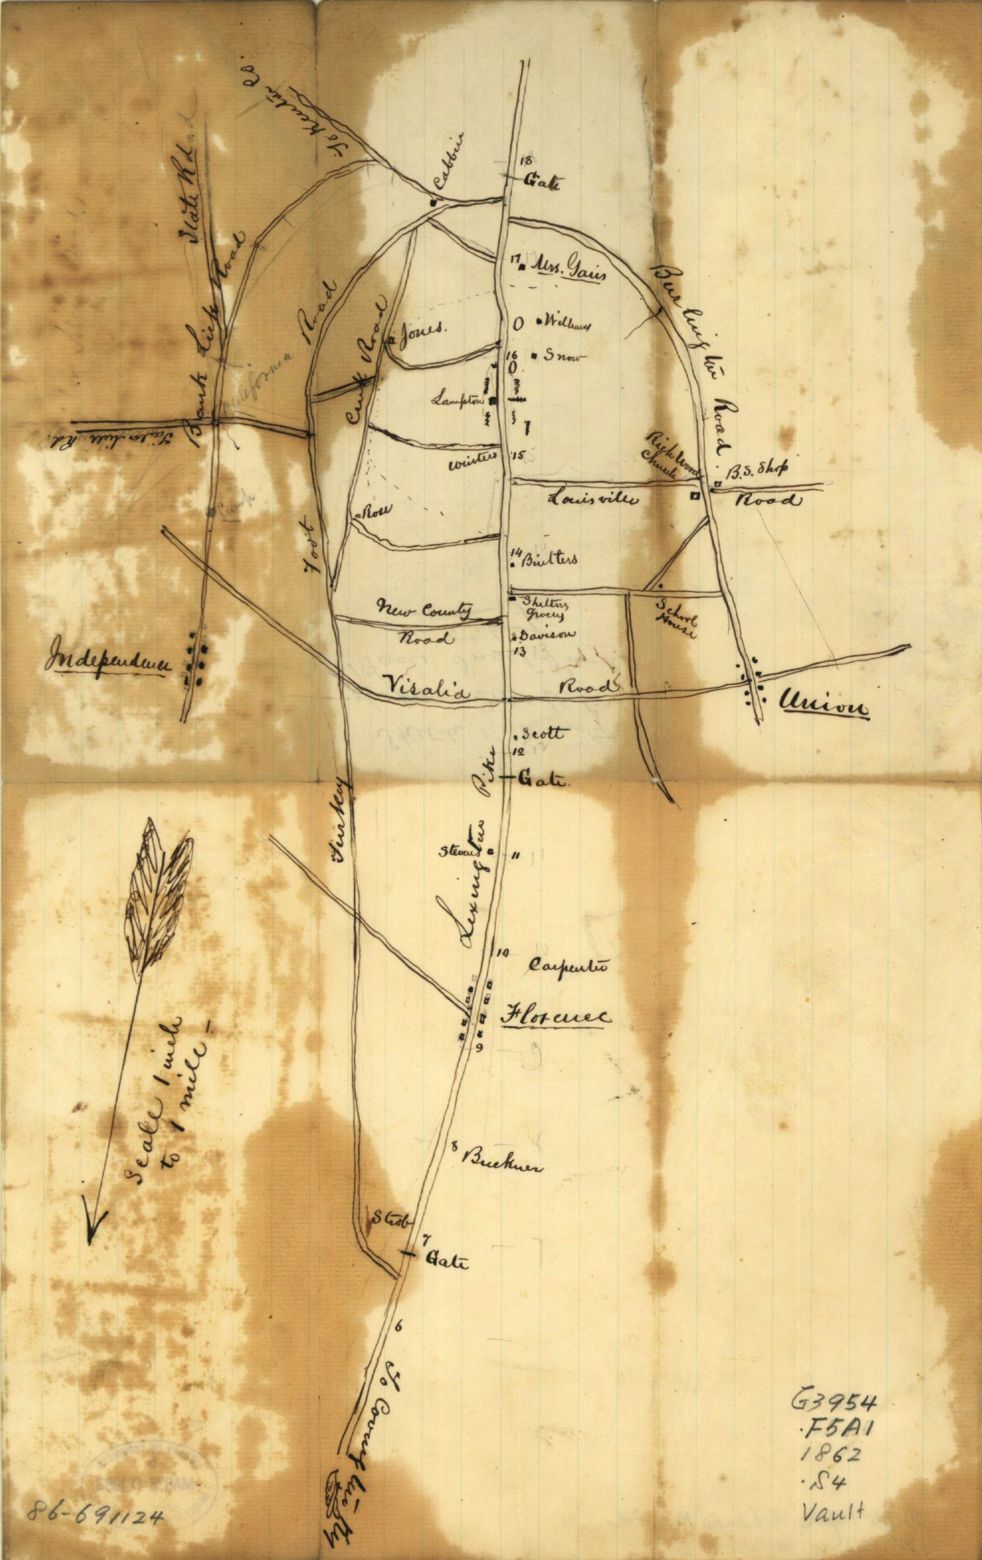 18
Gate
Cabbin
State Rd
Bank Lick Road
17
Mrs. Gais
Burlington Road
O
Williams
Jones.
16
O
Snow
Lampton
Road
Road
15
Church
B.S. Shop
Louisville
Road
Rose
Foot
14
New County
Road
School
House
Davison
13
Independence
Visalia
Road
Union
Scott
12
Gate
Turkey
Lexington Pike
Stevens
11
10
Carpenter
Florence
9
Scale 1 inch
to 1 mile -
8
Buckner
7
Gate
6
To Covington
Ky
G3954
.F5A1
1862
.S4
Vault
86-691124